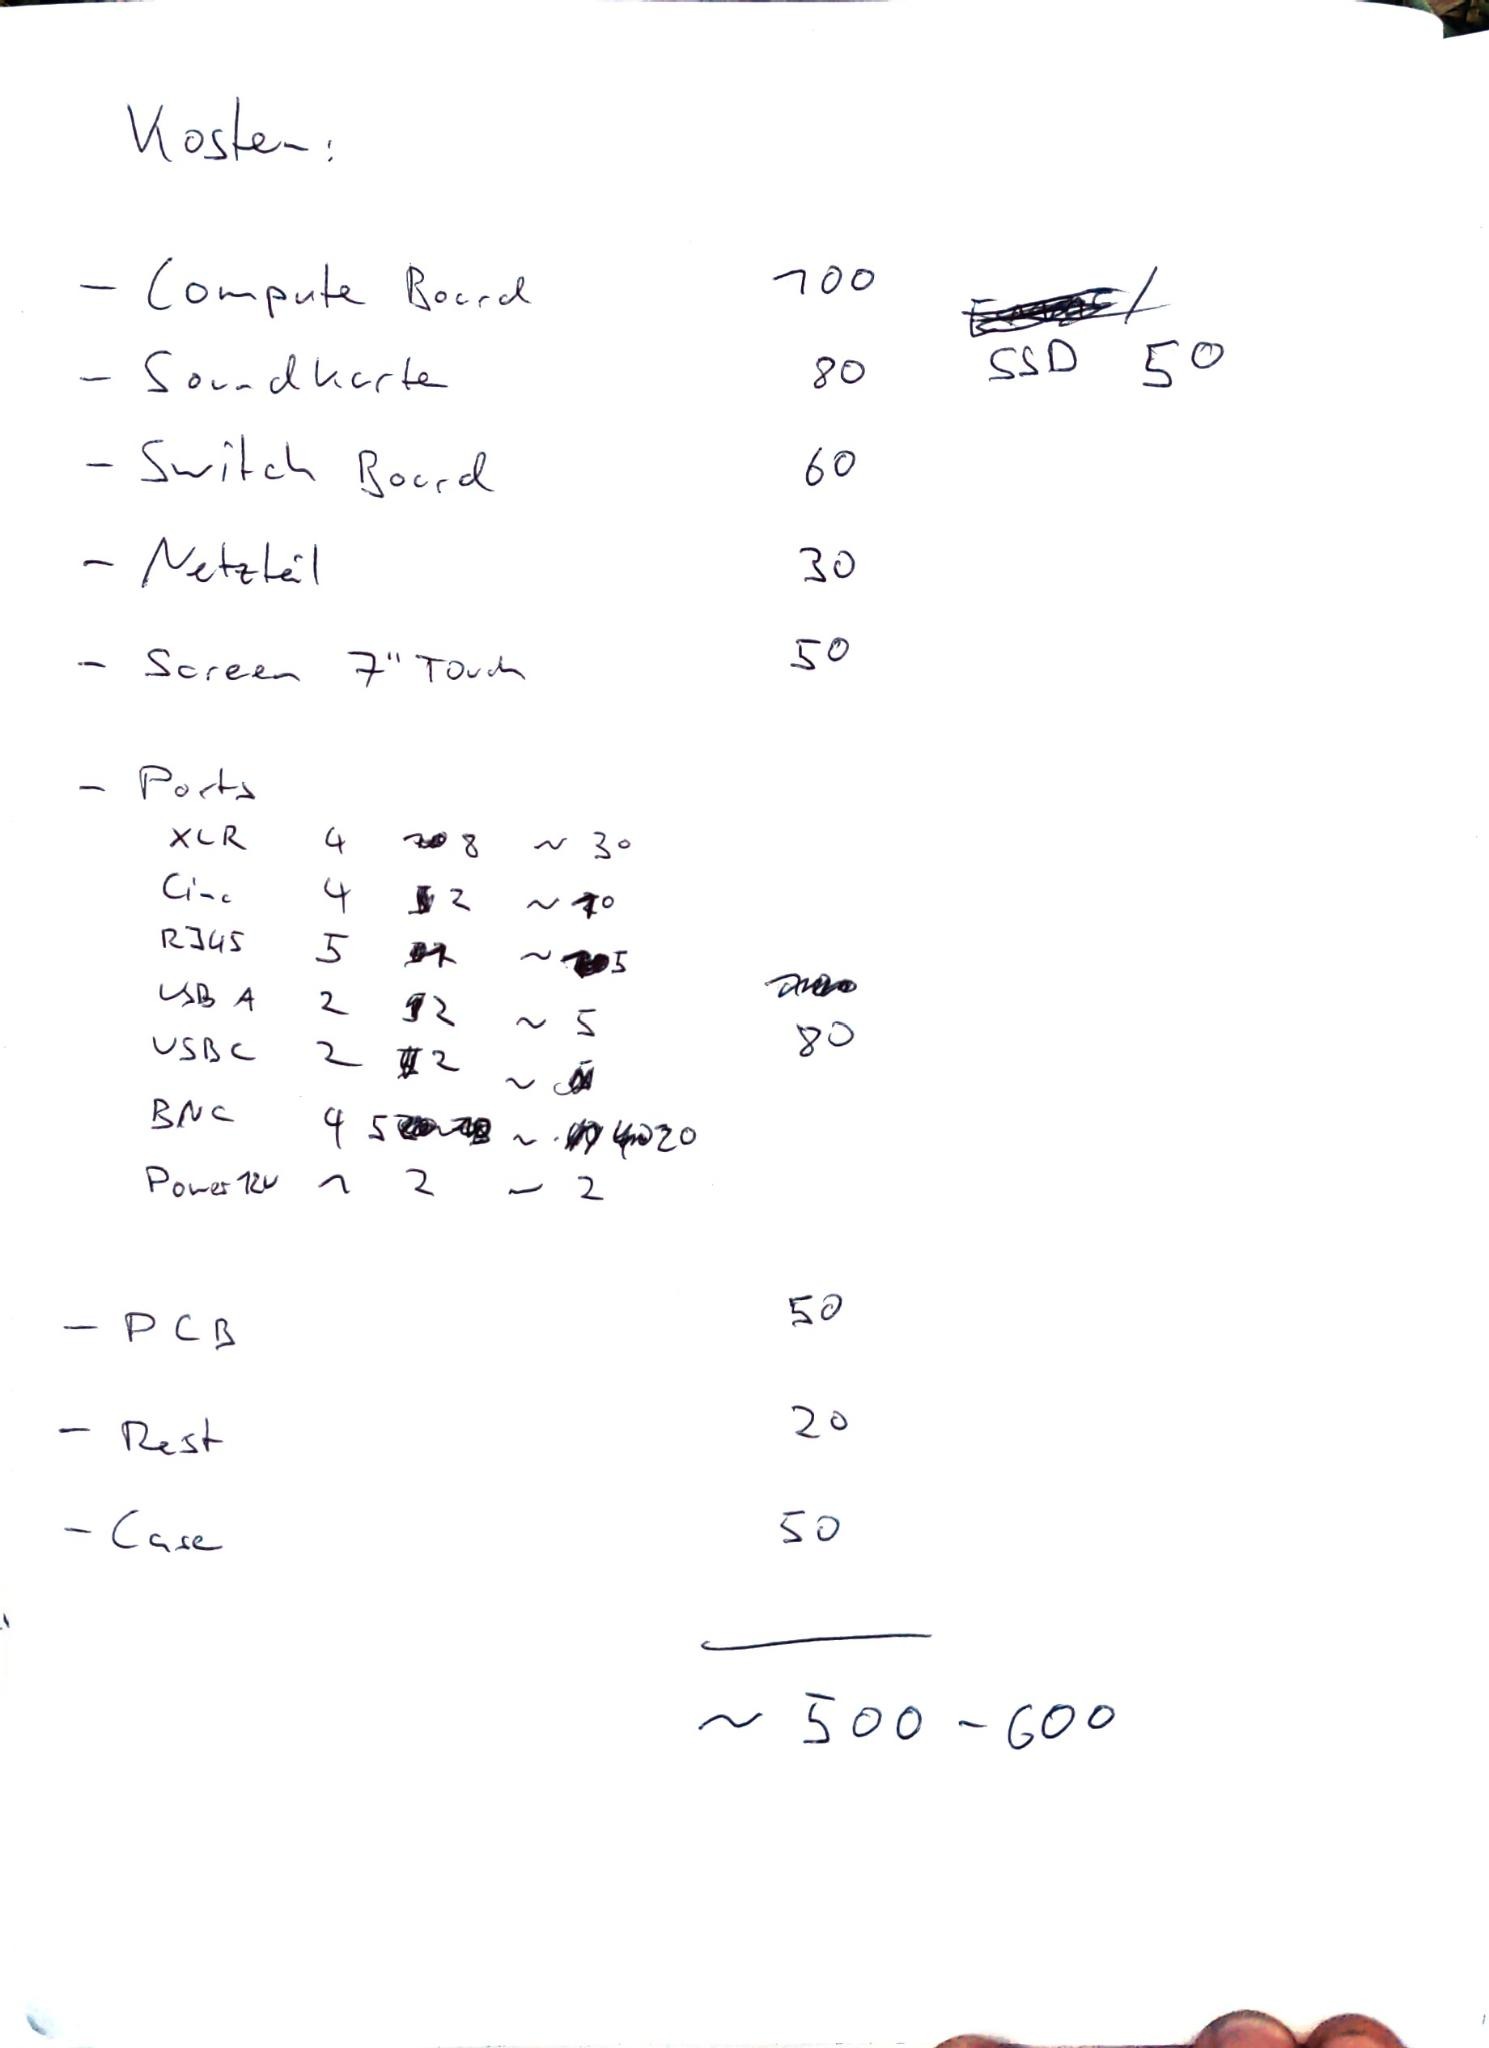 Kosten:
- Compute Board 100
SSD 50
- Soundkarte 80
- Switch Board 60
- Netzteil 30
- Screen 7" Touch 50
- Ports
XLR 4 8 ~ 30
Cinc 4 2 ~ 10
RJ45 5 ~ 5
USB A 2 2 ~ 5
80
USB C 2 2 ~
BNC 4 5 ~ 20
Power 12V 1 2 ~ 2
- PCB 50
- Rest 20
- Case 50
~ 500 - 600